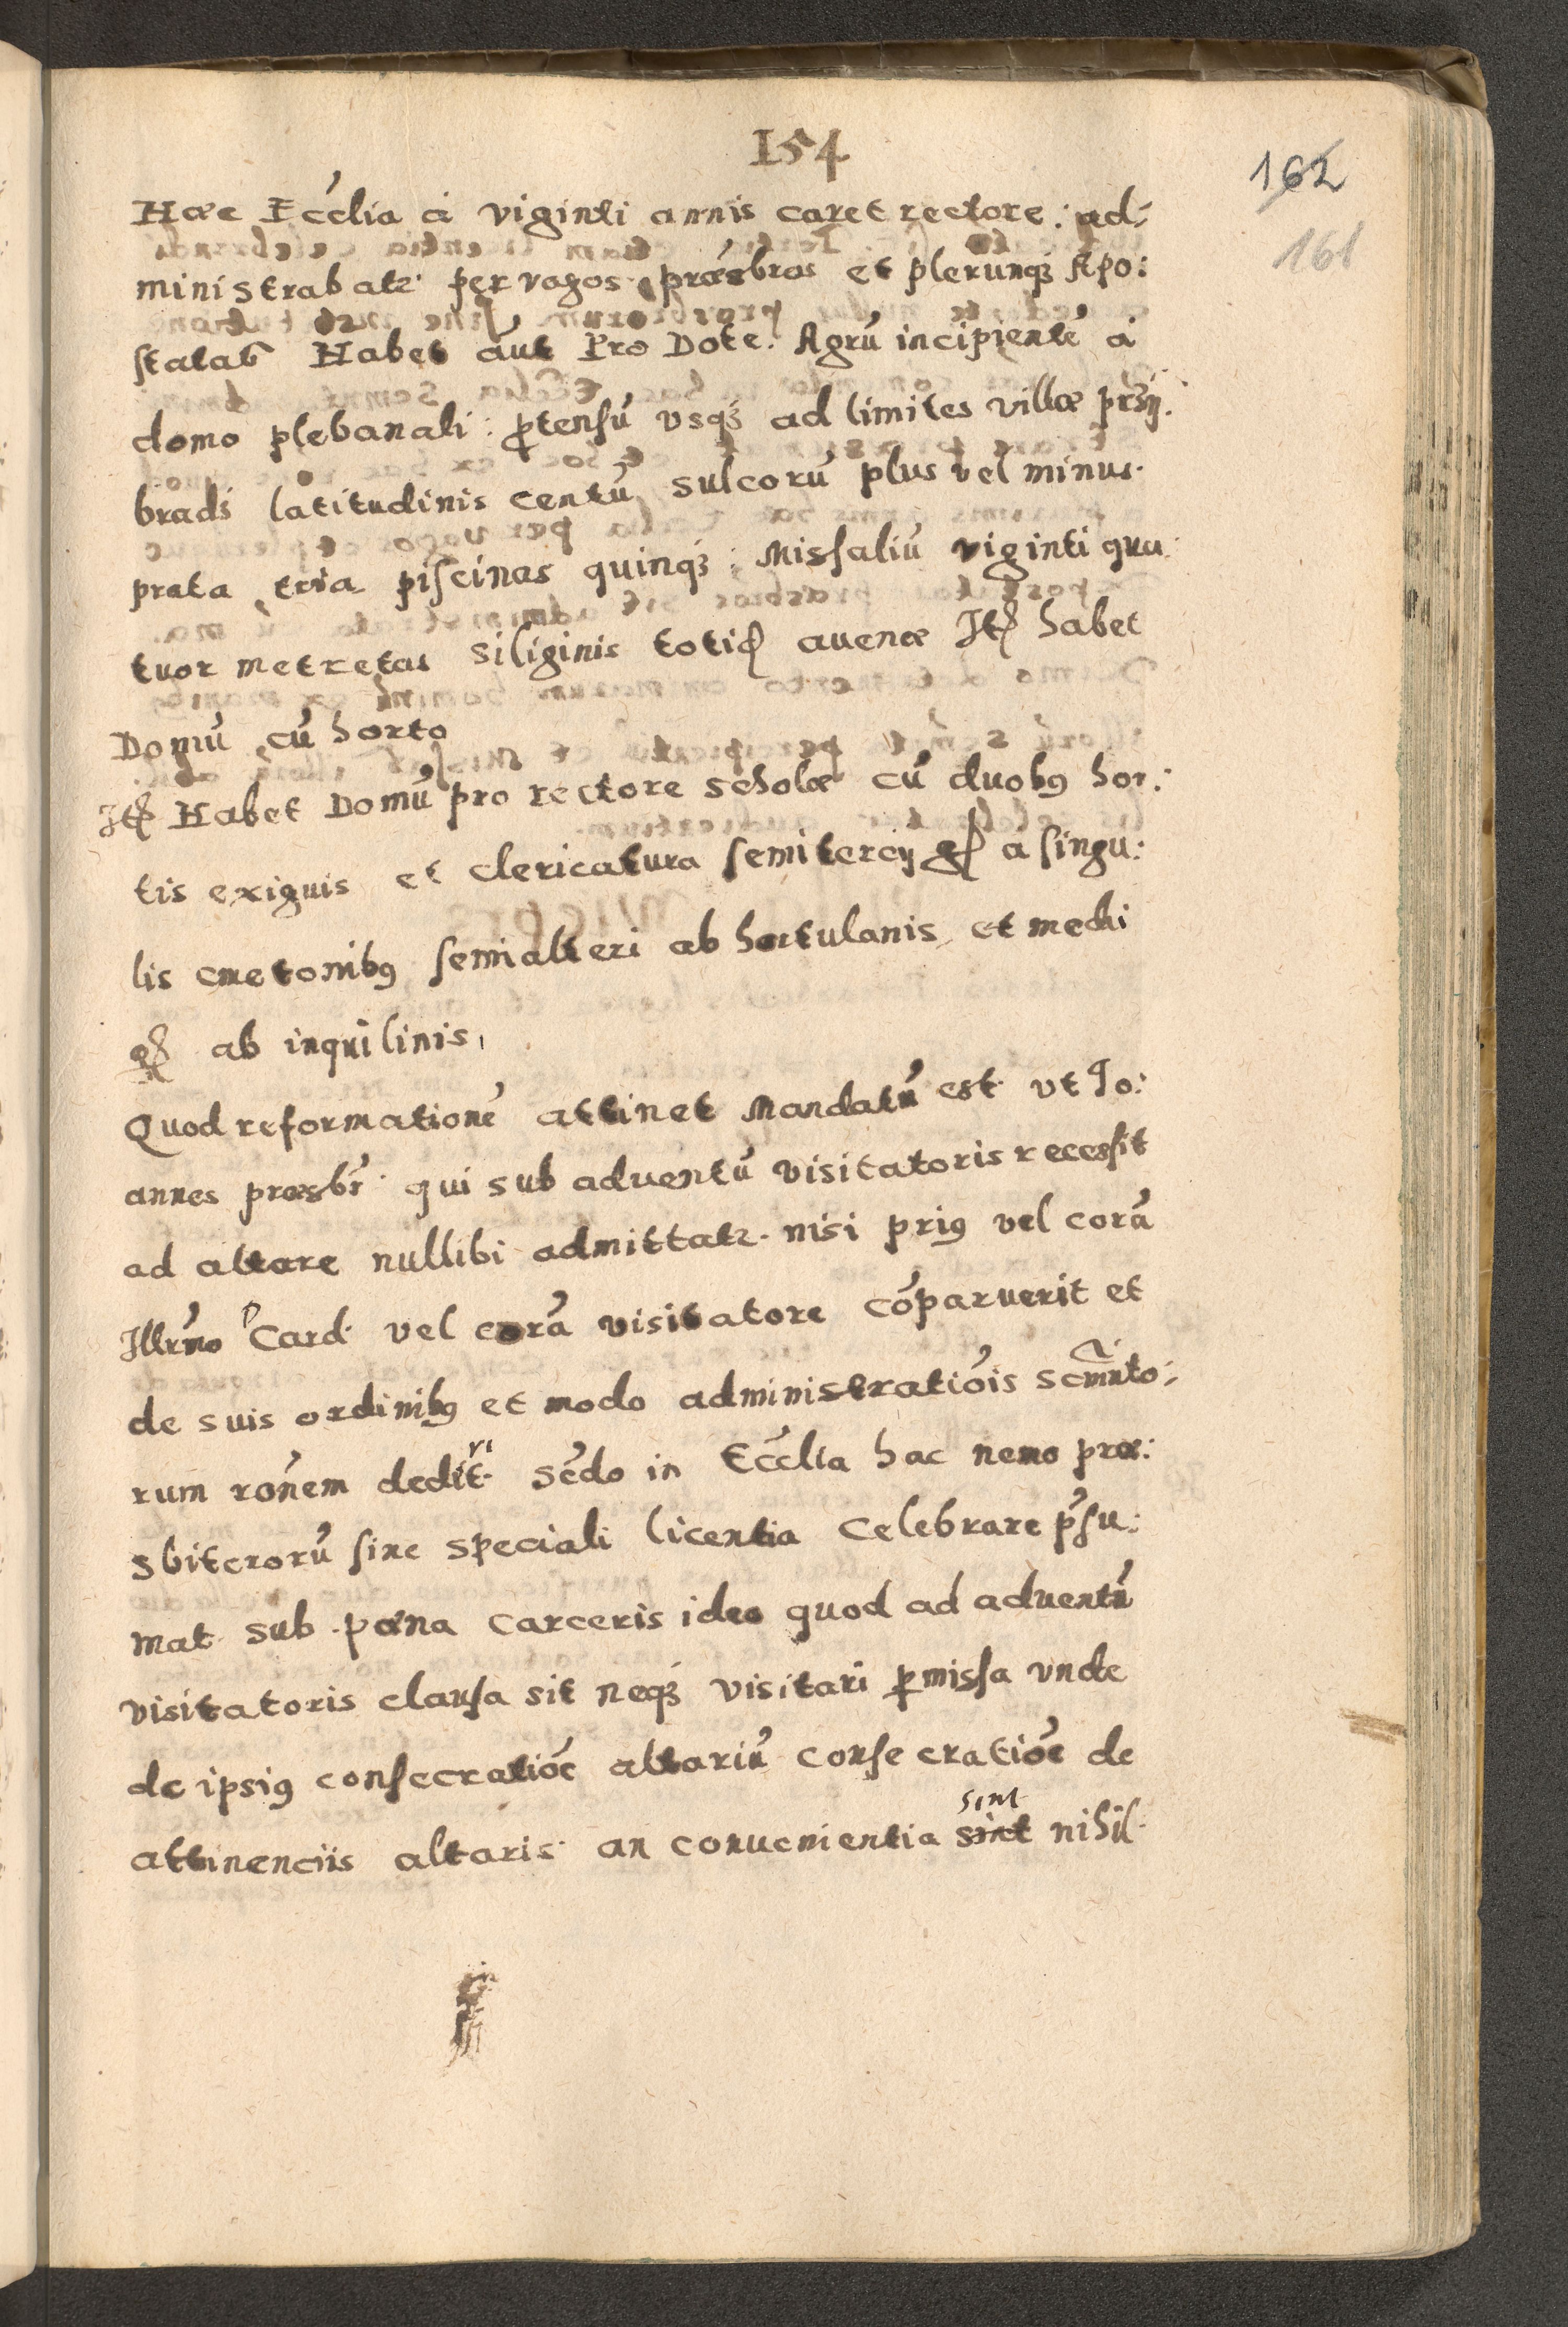 154
162
161
Hæc Ecclia à viginti annis caret rectore: ad:
ministrabatr per vagos præsbros et plerunq₃ Apo:
statas Habet aut Pro Dote. Agrū incipientē à
domo plebanali: ꝓtensū vsq₃ ad limites villæ
latitudinis centū sulcorū plus vel minus.
prata tria piscinas quinq₃: Missaliū viginti qua:
tuor metretas siliginis totid avenæ Itē habet
Domū cū horto
Itē Habet Domū pro rectore scholæ cū duobꝰ hor:
tis exiguis et clericatura semitercij gꝭ à singu:
lis cmetonibꝰ semialteri ab hortulanis et medii
gꝭ ab inquilinis.
Quod reformationē attinet Mandatū est vt Jo:
annes præsbr qui sub adventū visitatoris recessit
ad altare nullibi admittatr. nisi priꝰ vel corā
Illrmo D Card. vel corā visitatore cōparuerit et
de suis ordinibꝰ et modo administratiōis scmnto:
rum ronem dedit ri scdo in Ecclia hac nemo præ:
sbiterorū sine speciali licentia Celebrare p̄su:
mat sub pœna carceris ideo quod ad adventū
visitatoris clausa sit neq₃ visitari ꝑmissa vnde
de ipsiꝰ consecratiōe altariū consecratiōe de
attinenciis altaris an convenientia sint sint nihil